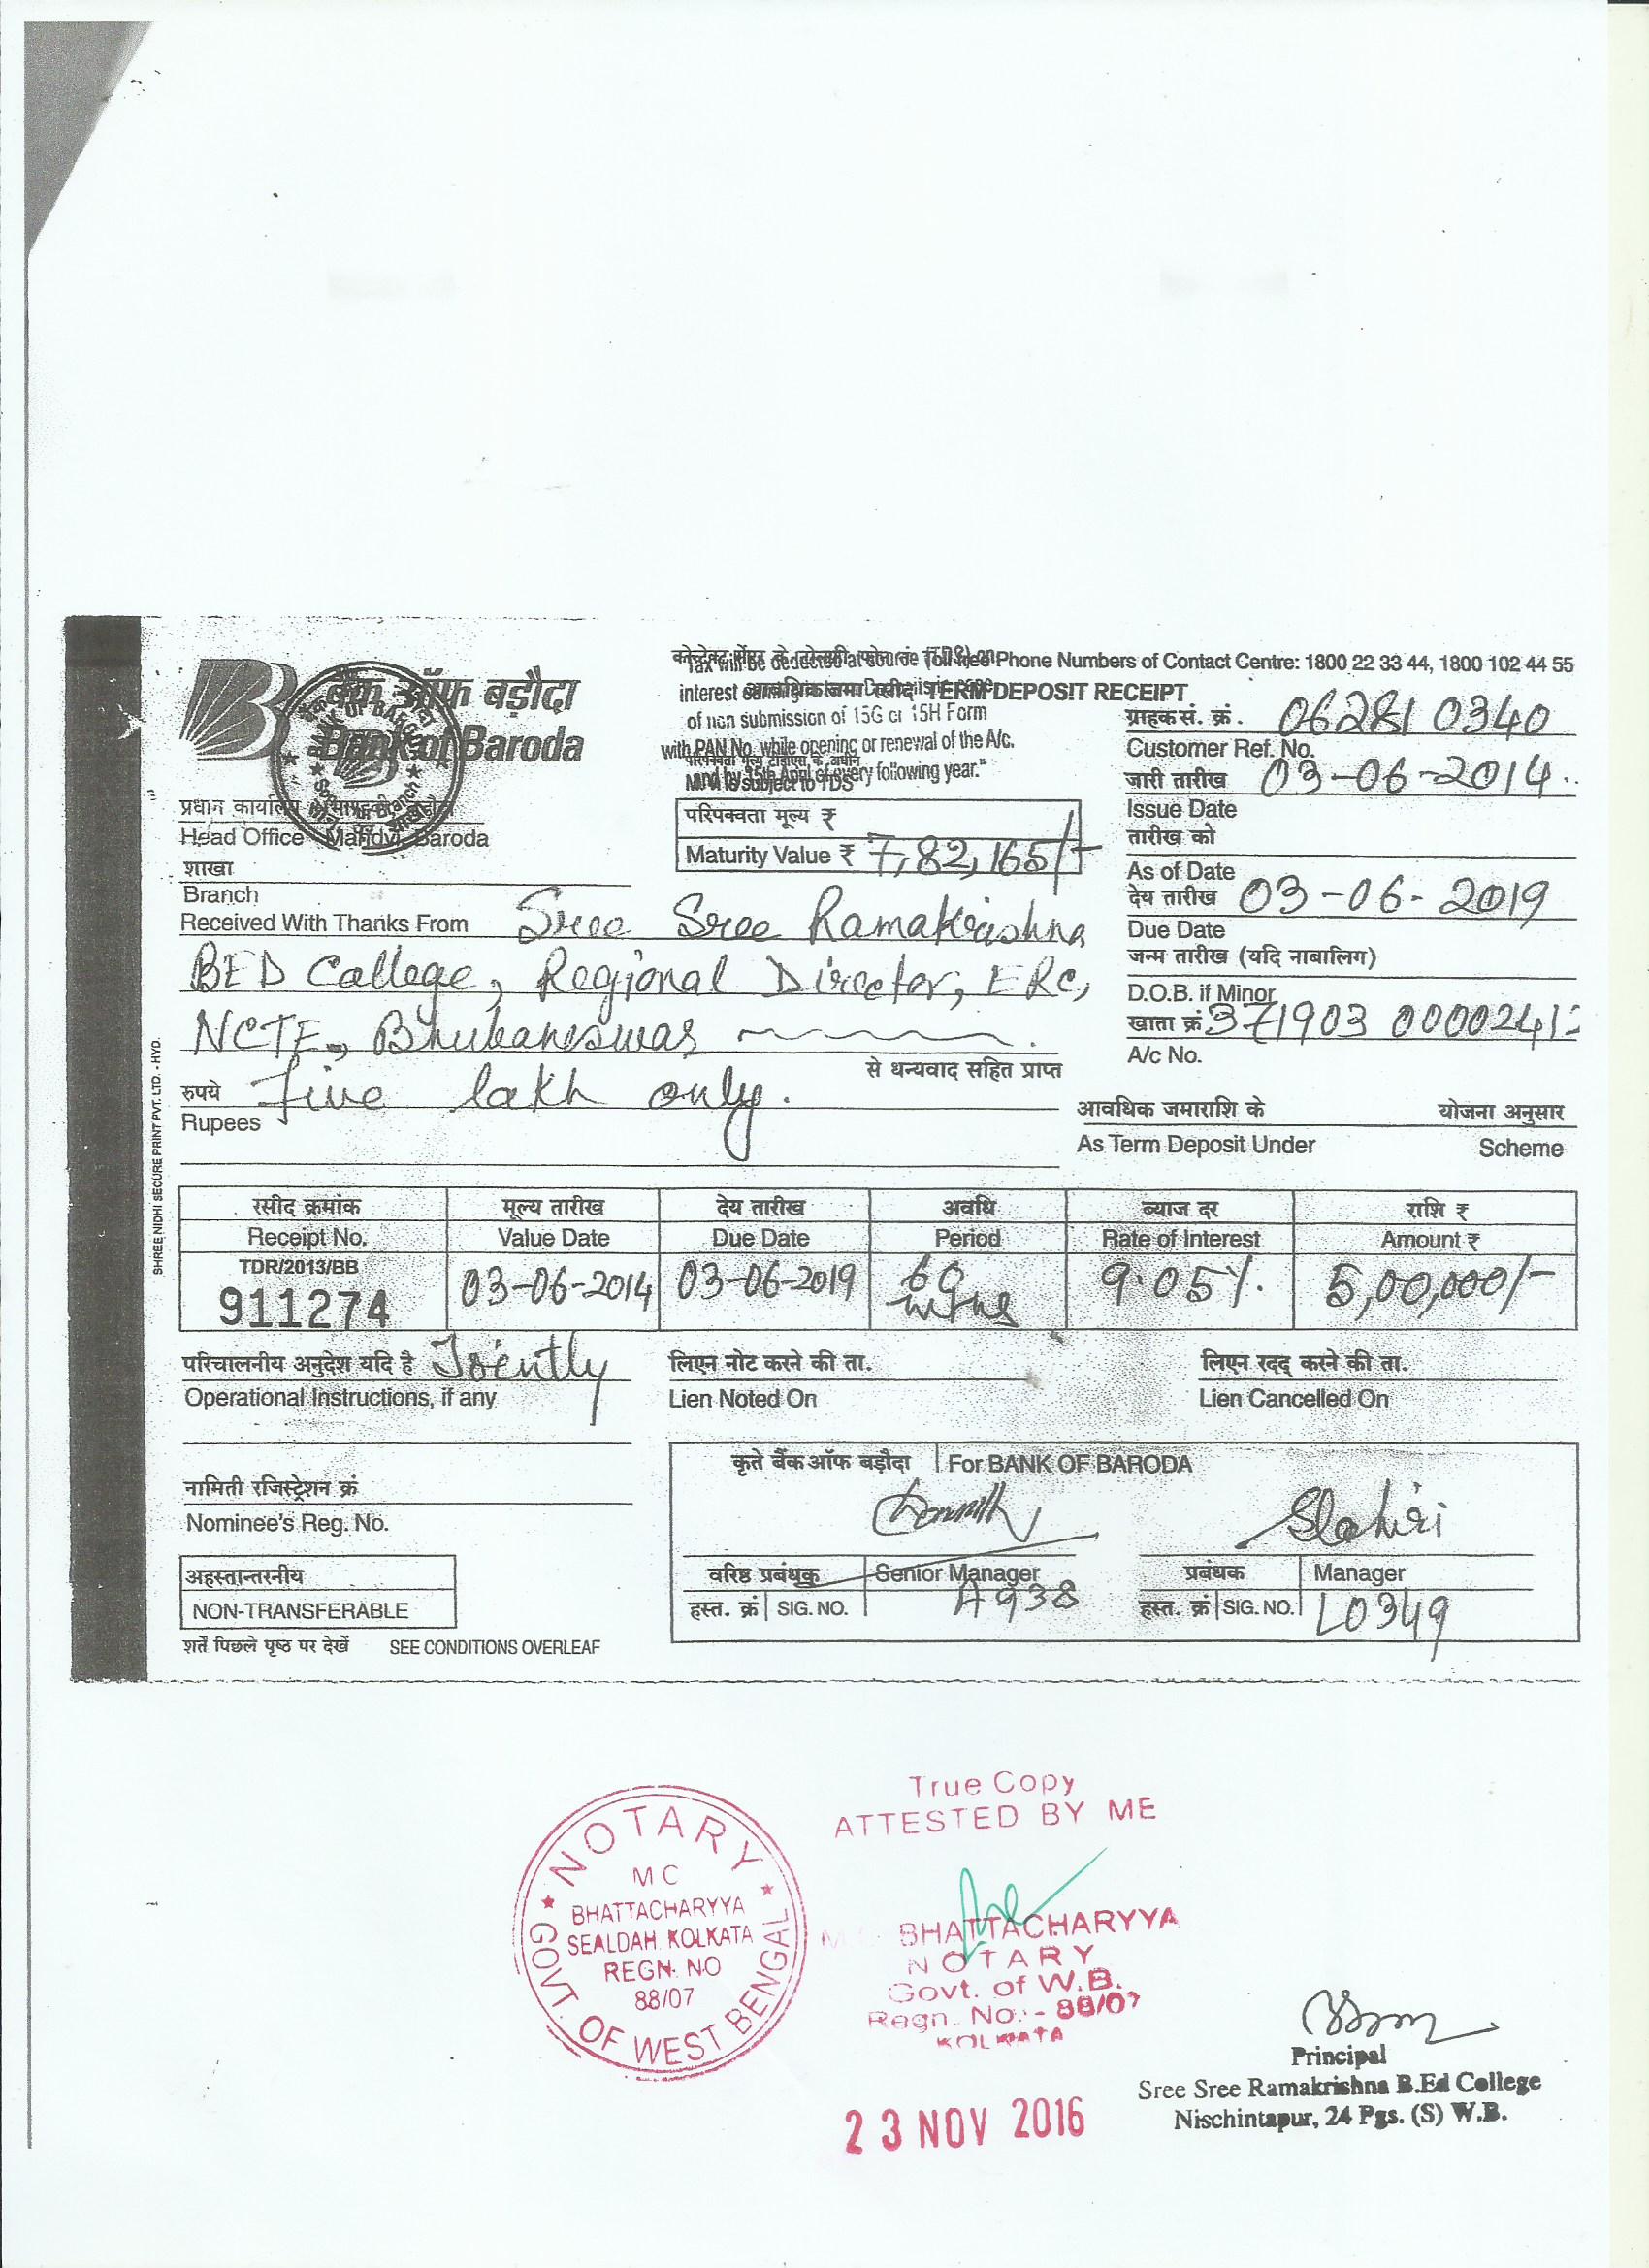 कोन्टेक्ट सेंटर के टोलफ्री फोन नं. Toll free Phone Numbers of Contact Centre: 1800 22 33 44, 1800 102 44 55
Tax will be deducted at source (TDS) on
बैंक ऑफ बड़ौदा
Bank of Baroda
आवधिक जमा रसीद TERM DEPOSIT RECEIPT
interest
of non submission of 15G or 15H Form
with PAN No. while opening or renewal of the A/c.
and by 15th April of every following year."
परिपक्वता मूल्य टीडीएस के अधीन
is subject to TDS
ग्राहक सं. क्रं. 06281 0340
Customer Ref. No.
जारी तारीख 03-06-2014
Issue Date
प्रधान कार्यालय
Head Office Mandvi, Baroda
परिपक्वता मूल्य ₹
Maturity Value ₹ 7,82,165/-
तारीख को
As of Date
शाखा
Branch
देय तारीख 03-06-2019
Due Date
Received With Thanks From Sree Sree Ramakrishna
BED College, Regional Director, ERC,
NCTE, Bhubaneswar
से धन्यवाद सहित प्राप्त
जन्म तारीख (यदि नाबालिग)
D.O.B. if Minor
खाता क्रं 371903 0000241
A/c No.
रुपये Five lakh only.
Rupees
आवधिक जमाराशि के योजना अनुसार
As Term Deposit Under Scheme
SHREE NIDHI SECURE PRINT PVT. LTD. - HYD.
रसीद क्रमांक मूल्य तारीख देय तारीख अवधि ब्याज दर राशि ₹
Receipt No. Value Date Due Date Period Rate of Interest Amount ₹
TDR/2013/BB
911274 03-06-2014 03-06-2019 60 9.05% 5,00,000/-
परिचालनीय अनुदेश यदि है Joently
Operational Instructions, if any
लिएन नोट करने की ता.
Lien Noted On
लिएन रदद् करने की ता.
Lien Cancelled On
नामिती रजिस्ट्रेशन क्रं
Nominee's Reg. No.
कृते बैंक ऑफ बड़ौदा For BANK OF BARODA
Slahiri
वरिष्ठ प्रबंधक Senior Manager
हस्त. क्रं SIG. NO. A938
प्रबंधक Manager
हस्त. क्रं SIG. NO. L0349
अहस्तान्तरनीय
NON-TRANSFERABLE
शर्तें पिछले पृष्ठ पर देखें SEE CONDITIONS OVERLEAF
NOTARY
GOVT. OF WEST BENGAL
M C
BHATTACHARYYA
SEALDAH KOLKATA
REGN. NO
88/07
True Copy
ATTESTED BY ME
M C BHATTACHARYYA
NOTARY
Govt. of W.B.
Regn. No.:- 88/07
KOLKATA
23 NOV 2016
Principal
Sree Sree Ramakrishna B.Ed College
Nischintapur, 24 Pgs. (S) W.B.